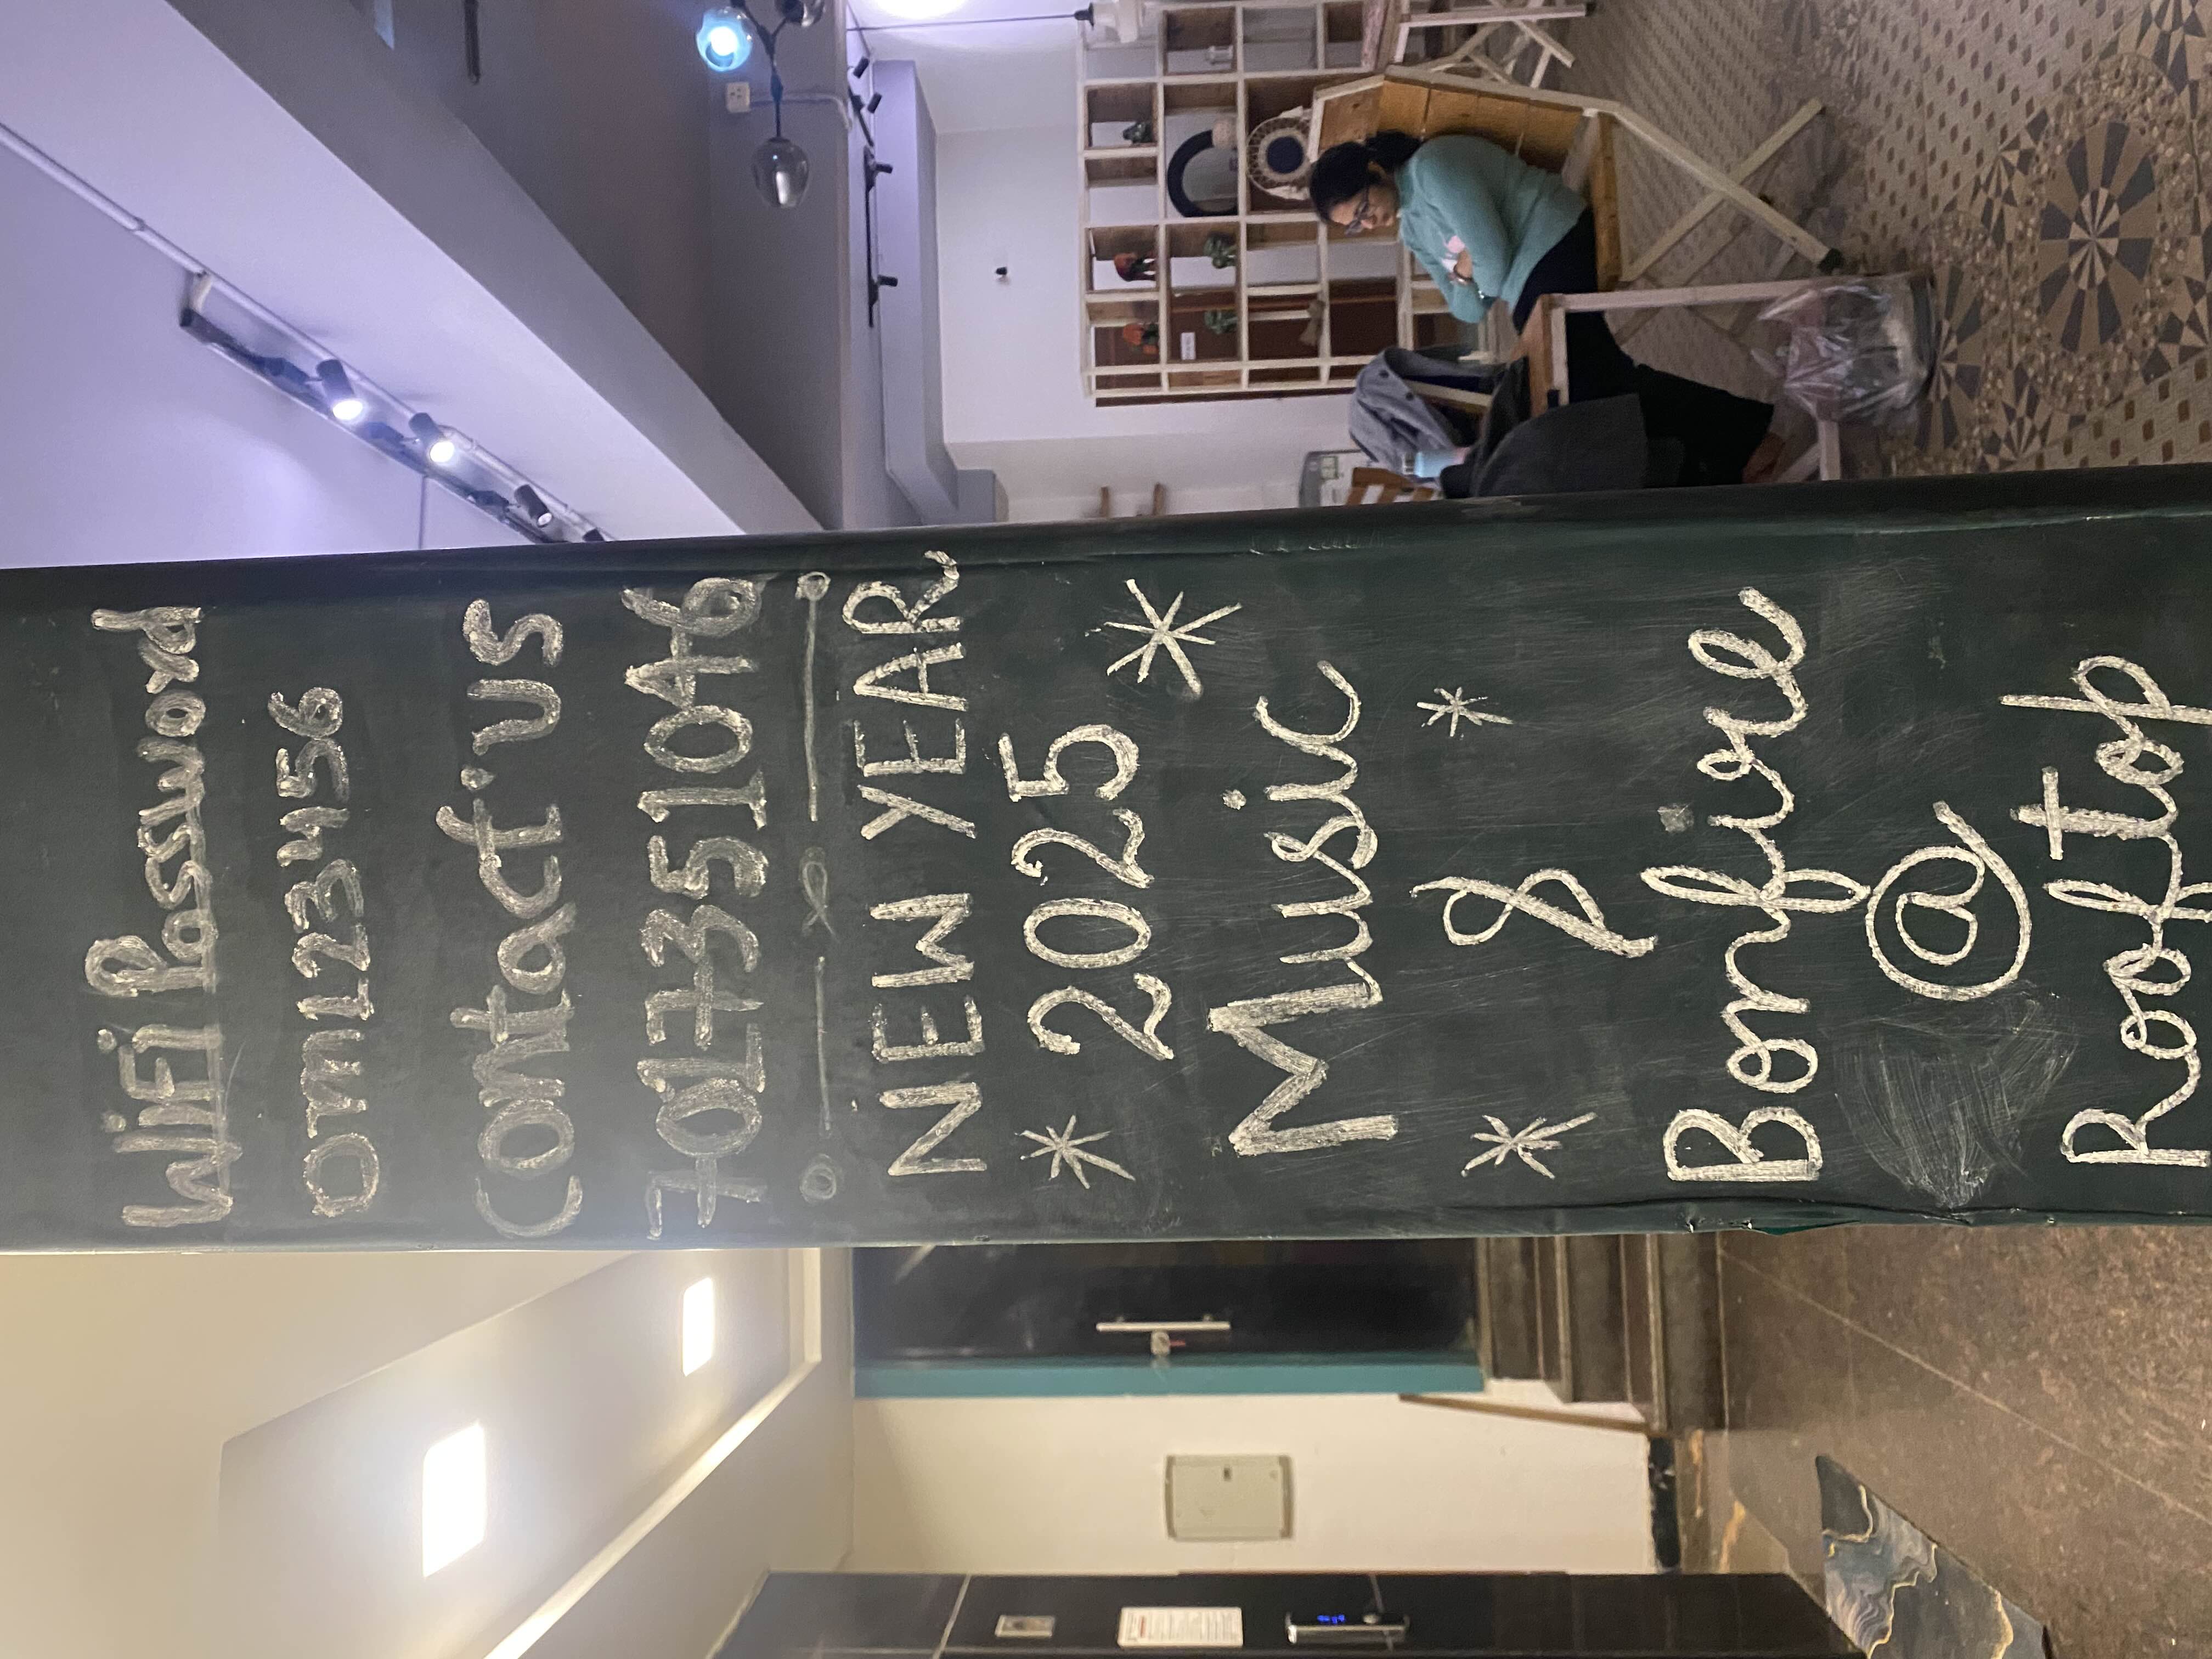 WiFi Password
om123456
Contact'us
7017351046
NEW YEAR
2025
Music
&
Bonfire
@
Rooftop